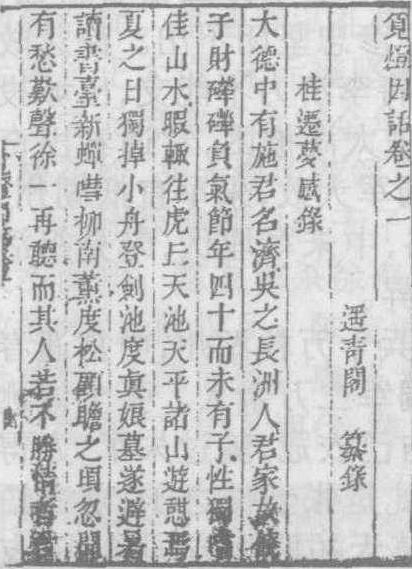 覓燈因話卷之一
遥青閣 纂錄
桂遷夢感錄
大德中有施君名濟吳之長洲人君家故饒
于財磥磥負氣節年四十而未有子性獨嗜
佳山水暇輒往虎丘天池天平諸山遊憩焉
夏之日獨掉小舟登劍池度眞娘墓遂避暑
讀書臺新蟬嘒柳南薰度松顧瞻之頃忽聞
有愁歎聲徐一再聽而其人若不勝情者